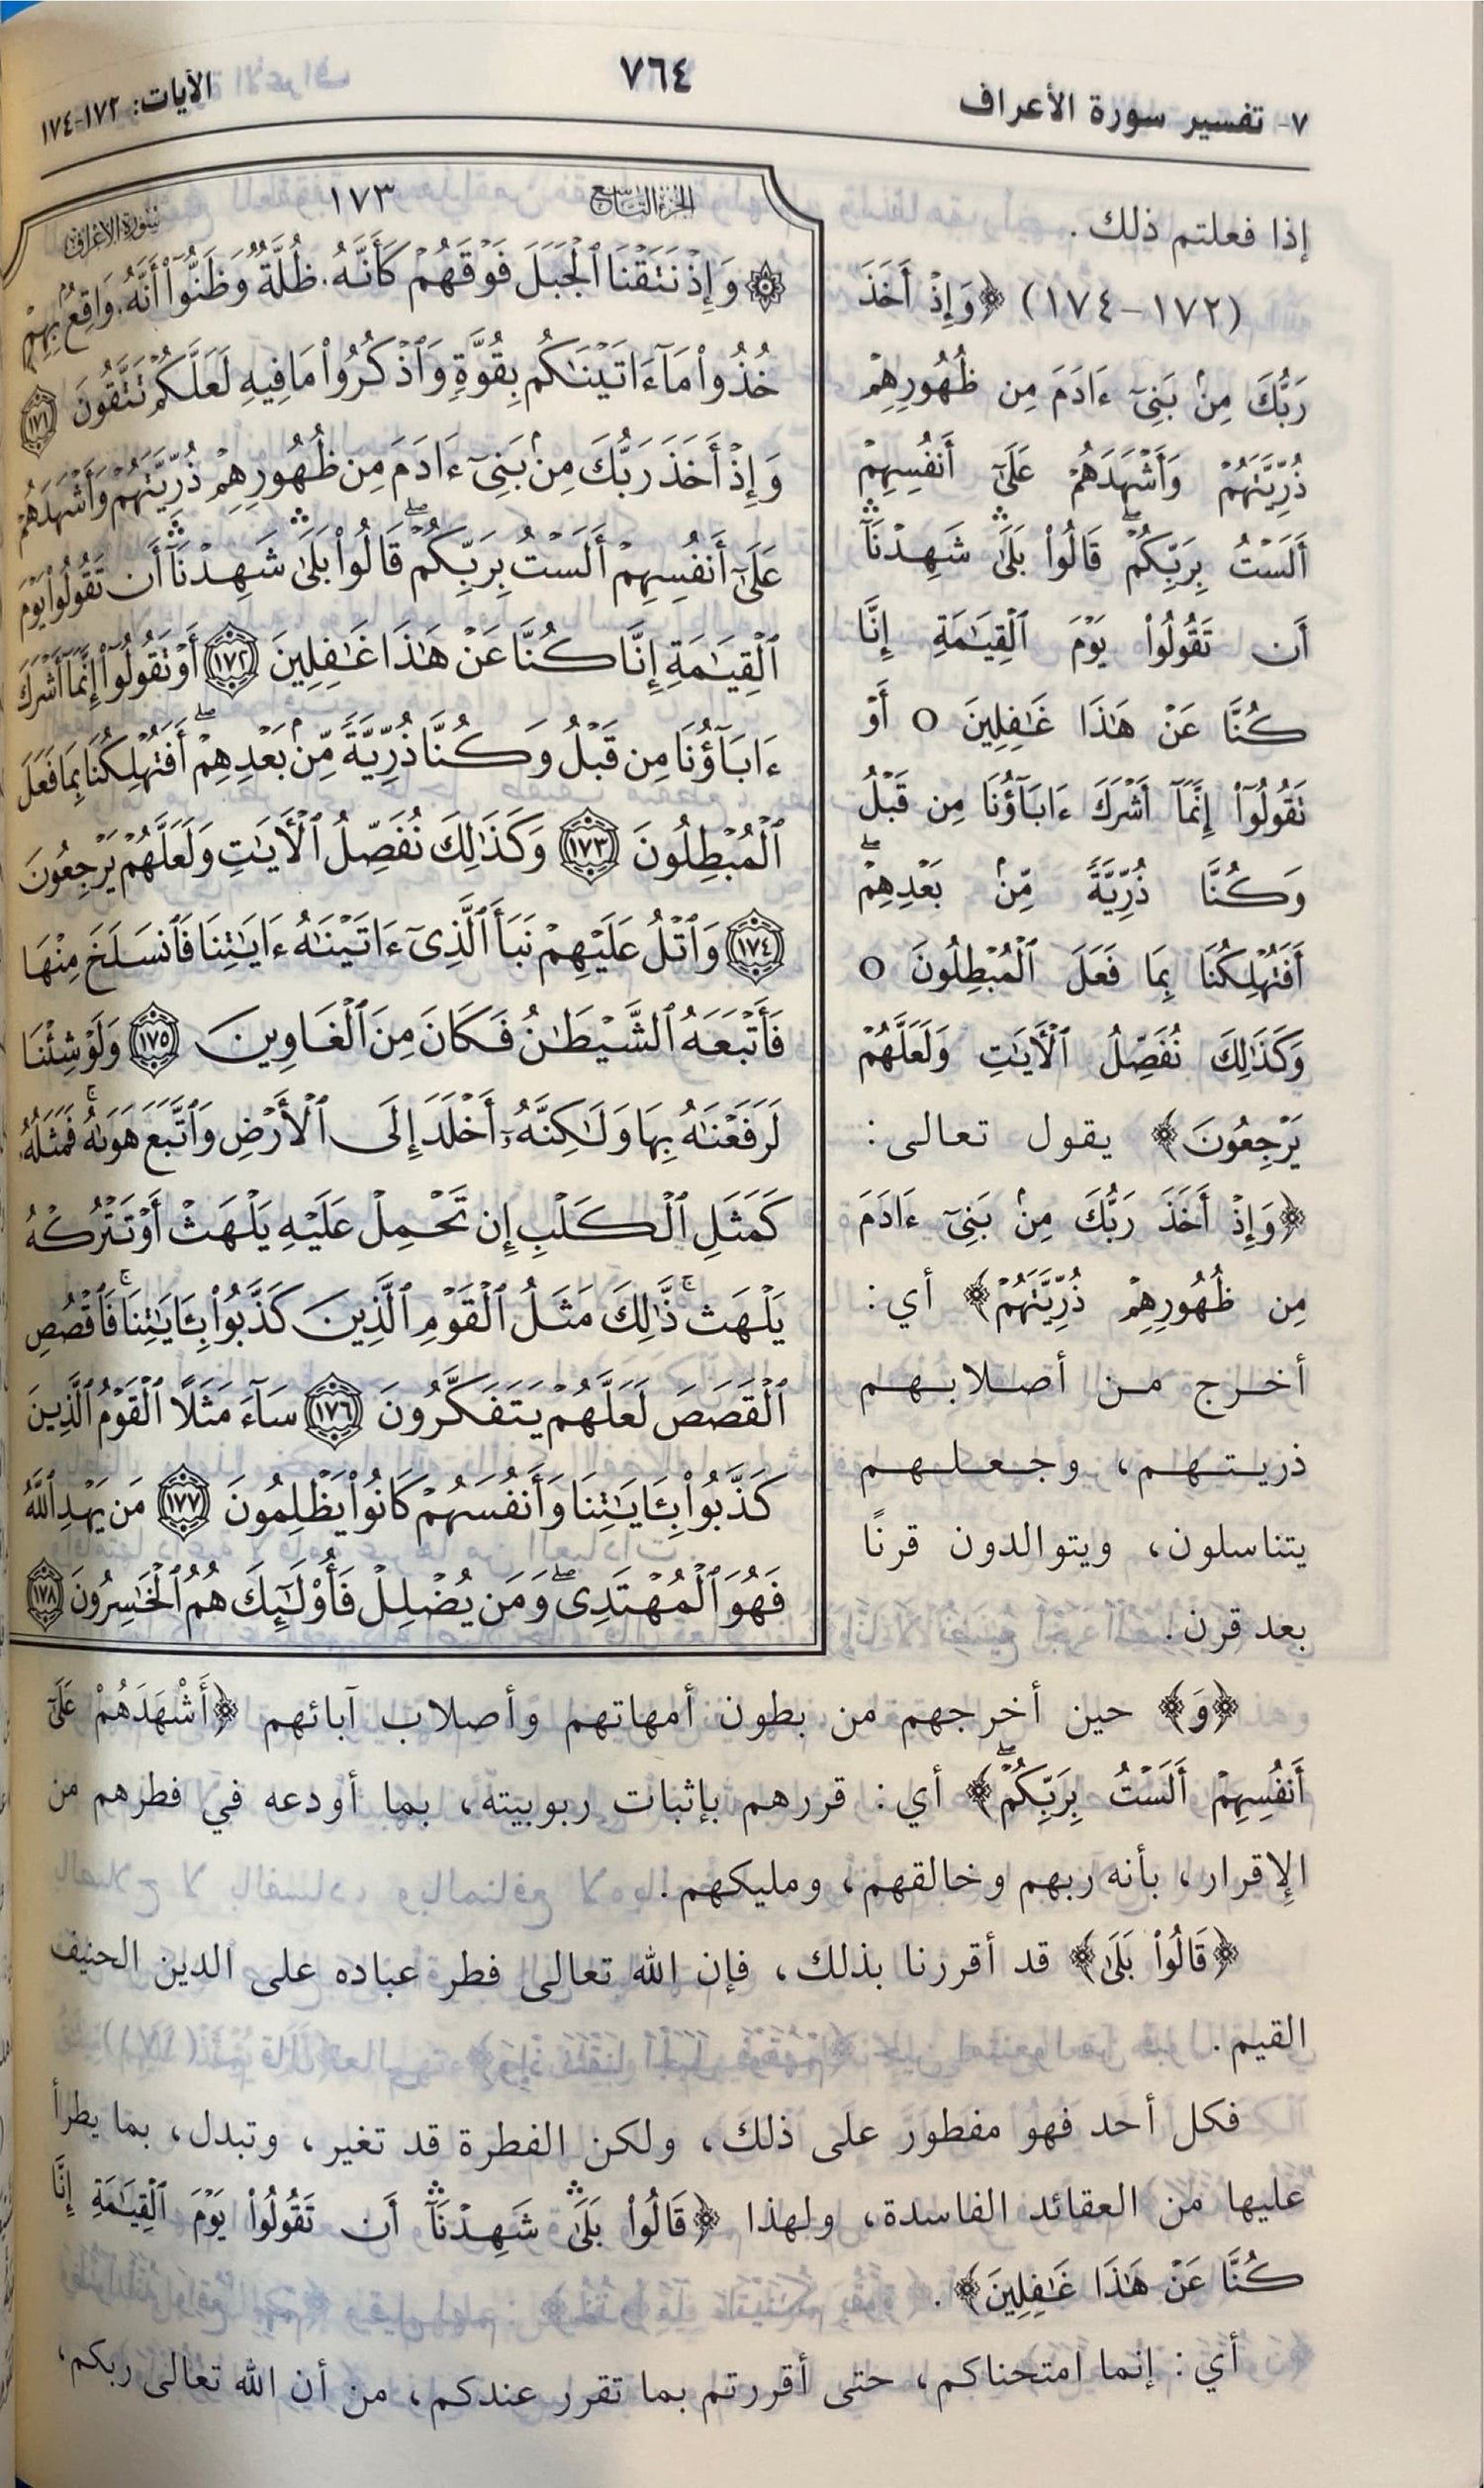 ٧- تفسير سورة الأعراف
٧٦٤
الآيات: ١٧٢-١٧٤
إذا فعلتم ذلك.
(١٧٢-١٧٤) ﴿وَإِذْ أَخَذَ
رَبُّكَ مِنۢ بَنِىٓ ءَادَمَ مِن ظُهُورِهِمْ
ذُرِّيَّتَهُمْ وَأَشْهَدَهُمْ عَلَىٰٓ أَنفُسِهِمْ
أَلَسْتُ بِرَبِّكُمْ ۖ قَالُوا۟ بَلَىٰ ۛ شَهِدْنَآ ۛ
أَن تَقُولُوا۟ يَوْمَ ٱلْقِيَـٰمَةِ إِنَّا
كُنَّا عَنْ هَـٰذَا غَـٰفِلِينَ ○ أَوْ
تَقُولُوٓا۟ إِنَّمَآ أَشْرَكَ ءَابَآؤُنَا مِن قَبْلُ
وَكُنَّا ذُرِّيَّةً مِّنۢ بَعْدِهِمْ ۖ
أَفَتُهْلِكُنَا بِمَا فَعَلَ ٱلْمُبْطِلُونَ ○
وَكَذَٰلِكَ نُفَصِّلُ ٱلْـَٔايَـٰتِ وَلَعَلَّهُمْ
يَرْجِعُونَ﴾ يقول تعالى:
﴿وَإِذْ أَخَذَ رَبُّكَ مِنۢ بَنِىٓ ءَادَمَ
مِن ظُهُورِهِمْ ذُرِّيَّتَهُمْ﴾ أي:
أخرج من أصلابهم
ذريتهم، وجعلهم
يتناسلون، ويتوالدون قرنًا
بعد قرن.
الجزء التاسع
١٧٣
سورة الأعراف
۞ وَإِذْ نَتَقْنَا ٱلْجَبَلَ فَوْقَهُمْ كَأَنَّهُۥ ظُلَّةٌ وَظَنُّوٓا۟ أَنَّهُۥ وَاقِعٌۢ بِهِمْ
خُذُوا۟ مَآ ءَاتَيْنَـٰكُم بِقُوَّةٍ وَٱذْكُرُوا۟ مَا فِيهِ لَعَلَّكُمْ تَتَّقُونَ ١٧١
وَإِذْ أَخَذَ رَبُّكَ مِنۢ بَنِىٓ ءَادَمَ مِن ظُهُورِهِمْ ذُرِّيَّتَهُمْ وَأَشْهَدَهُمْ
عَلَىٰٓ أَنفُسِهِمْ أَلَسْتُ بِرَبِّكُمْ ۖ قَالُوا۟ بَلَىٰ ۛ شَهِدْنَآ ۛ أَن تَقُولُوا۟ يَوْمَ
ٱلْقِيَـٰمَةِ إِنَّا كُنَّا عَنْ هَـٰذَا غَـٰفِلِينَ ١٧٢ أَوْ تَقُولُوٓا۟ إِنَّمَآ أَشْرَكَ
ءَابَآؤُنَا مِن قَبْلُ وَكُنَّا ذُرِّيَّةً مِّنۢ بَعْدِهِمْ ۖ أَفَتُهْلِكُنَا بِمَا فَعَلَ
ٱلْمُبْطِلُونَ ١٧٣ وَكَذَٰلِكَ نُفَصِّلُ ٱلْـَٔايَـٰتِ وَلَعَلَّهُمْ يَرْجِعُونَ
١٧٤ وَٱتْلُ عَلَيْهِمْ نَبَأَ ٱلَّذِىٓ ءَاتَيْنَـٰهُ ءَايَـٰتِنَا فَٱنسَلَخَ مِنْهَا
فَأَتْبَعَهُ ٱلشَّيْطَـٰنُ فَكَانَ مِنَ ٱلْغَاوِينَ ١٧٥ وَلَوْ شِئْنَا
لَرَفَعْنَـٰهُ بِهَا وَلَـٰكِنَّهُۥٓ أَخْلَدَ إِلَى ٱلْأَرْضِ وَٱتَّبَعَ هَوَىٰهُ ۚ فَمَثَلُهُۥ
كَمَثَلِ ٱلْكَلْبِ إِن تَحْمِلْ عَلَيْهِ يَلْهَثْ أَوْ تَتْرُكْهُ
يَلْهَث ۚ ذَّٰلِكَ مَثَلُ ٱلْقَوْمِ ٱلَّذِينَ كَذَّبُوا۟ بِـَٔايَـٰتِنَا ۚ فَٱقْصُصِ
ٱلْقَصَصَ لَعَلَّهُمْ يَتَفَكَّرُونَ ١٧٦ سَآءَ مَثَلًا ٱلْقَوْمُ ٱلَّذِينَ
كَذَّبُوا۟ بِـَٔايَـٰتِنَا وَأَنفُسَهُمْ كَانُوا۟ يَظْلِمُونَ ١٧٧ مَن يَهْدِ ٱللَّهُ
فَهُوَ ٱلْمُهْتَدِى ۖ وَمَن يُضْلِلْ فَأُو۟لَـٰٓئِكَ هُمُ ٱلْخَـٰسِرُونَ ١٧٨
﴿وَ﴾ حين أخرجهم من بطون أمهاتهم وأصلاب آبائهم ﴿أَشْهَدَهُمْ عَلَىٰٓ
أَنفُسِهِمْ أَلَسْتُ بِرَبِّكُمْ ۖ﴾ أي: قررهم بإثبات ربوبيته، بما أودعه في فطرهم من
الإقرار، بأنه ربهم وخالقهم، ومليكهم.
﴿قَالُوا۟ بَلَىٰ﴾ قد أقررنا بذلك، فإن الله تعالى فطر عباده على الدين الحنيف
القيم.
فكل أحد فهو مفطور على ذلك، ولكن الفطرة قد تغير، وتبدل، بما يطرأ
عليها من العقائد الفاسدة، ولهذا ﴿قَالُوا۟ بَلَىٰ ۛ شَهِدْنَآ ۛ أَن تَقُولُوا۟ يَوْمَ ٱلْقِيَـٰمَةِ إِنَّا
كُنَّا عَنْ هَـٰذَا غَـٰفِلِينَ﴾.
أي: إنما امتحناكم، حتى أقررتم بما تقرر عندكم، من أن الله تعالى ربكم،